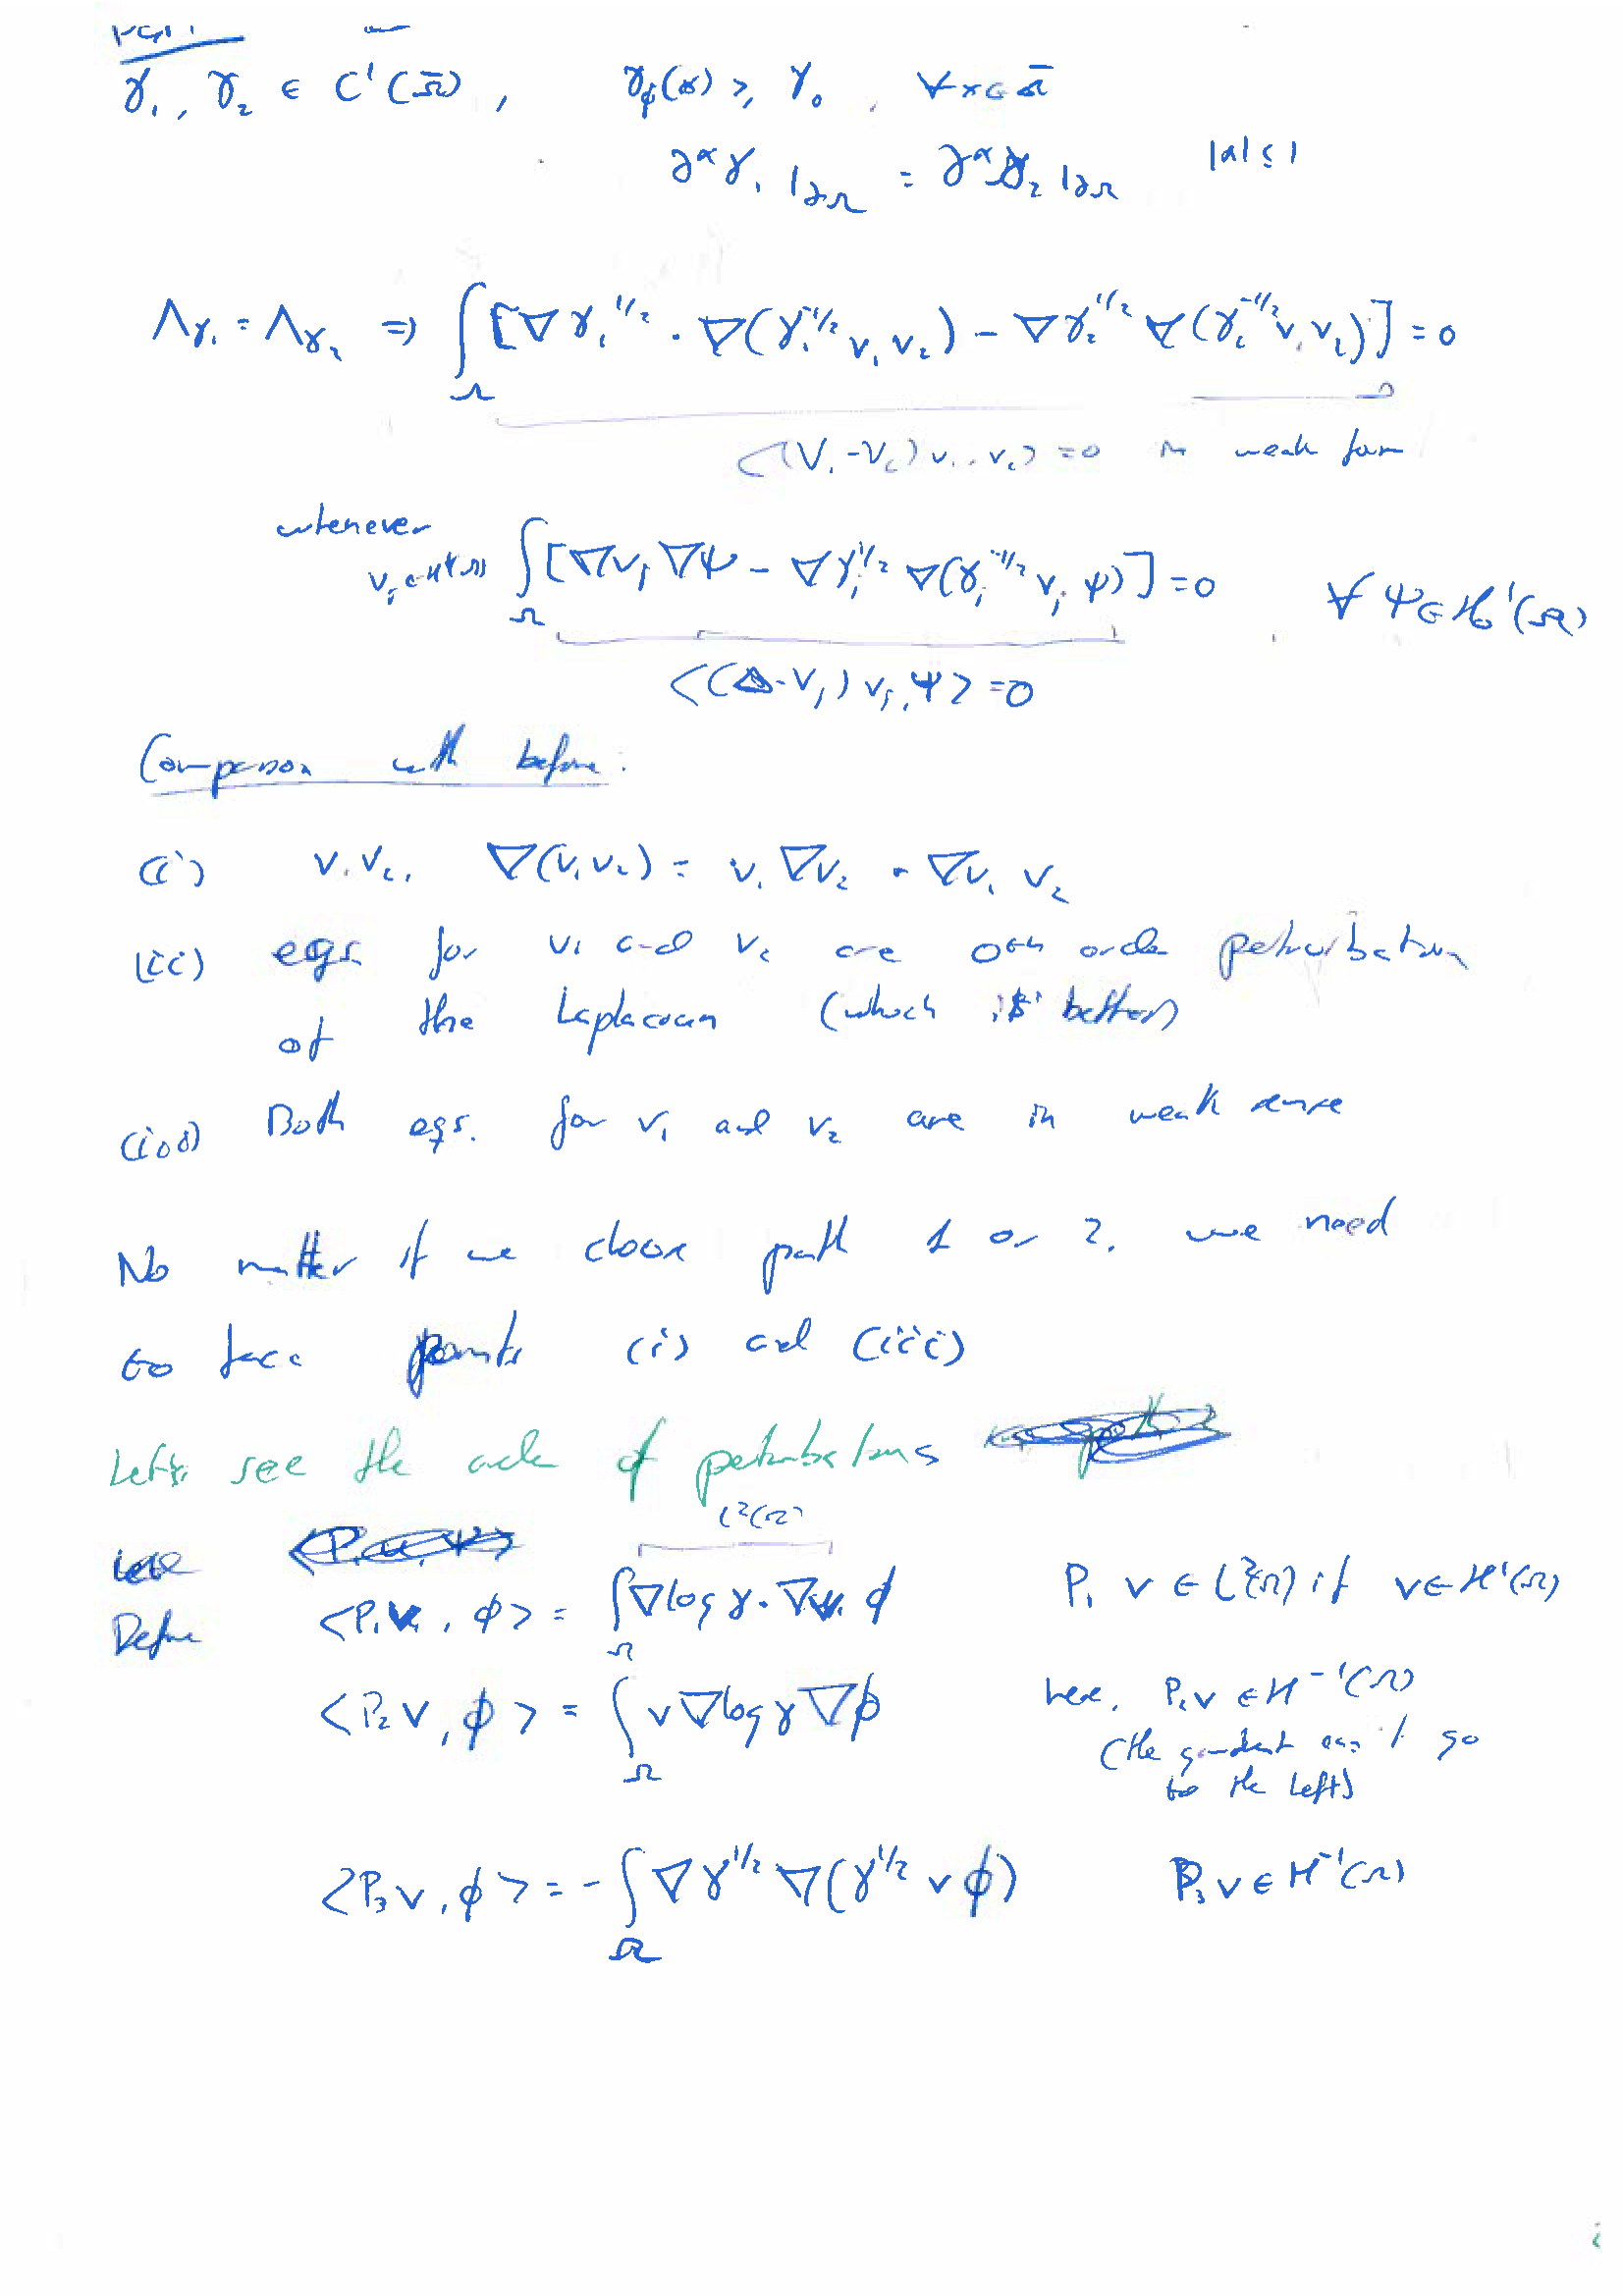 γ₁, γ₂ ∈ C¹(Ω̄), γⱼ(x) ≥ γ₀, ∀x∈Ω̄
∂^α γ₁|∂Ω = ∂^α γ₂|∂Ω |α| ≤ 1
Λγ₁ = Λγ₂ ⇒ ∫_Ω [∇γ₁^{1/2} · ∇(γ₁^{-1/2} v₁ v₂) − ∇γ₂^{1/2} ∇(γ₂^{-1/2} v₁ v₂)] = 0
<(V₁ - V₂) v₁, v₂> = 0 in weak form
whenever
vⱼ ∈ H¹(Ω) ∫_Ω [∇vⱼ ∇ψ − ∇γⱼ^{1/2} ∇(γⱼ^{-1/2} vⱼ ψ)] = 0 ∀ ψ ∈ H₀¹(Ω)
<(Δ - Vⱼ) vⱼ, ψ> = 0
Comparison with before:
(i) v₁ v₂, ∇(v₁ v₂) = v₁ ∇v₂ + ∇v₁ v₂
(ii) eqs. for v₁ and v₂ are 0th order perturbation
of the Laplacian (which is better)
(iii) Both eqs. for v₁ and v₂ are in weak sense
No matter if we choose path 1 or 2, we need
to face points (i) and (iii)
Let's see the order of perturbations
L²(Ω)
Define <P₁v, φ> = ∫_Ω ∇log γ · ∇v φ P₁ v ∈ L²(Ω) if v ∈ H¹(Ω)
<P₂ v, φ> = ∫_Ω v ∇log γ ∇φ here, P₂v ∈ H^{-1}(Ω)
(the gradient can't go
to the left)
<P₃ v, φ> = − ∫_Ω ∇γ^{1/2} ∇(γ^{1/2} v φ) P₃ v ∈ H^{-1}(Ω)